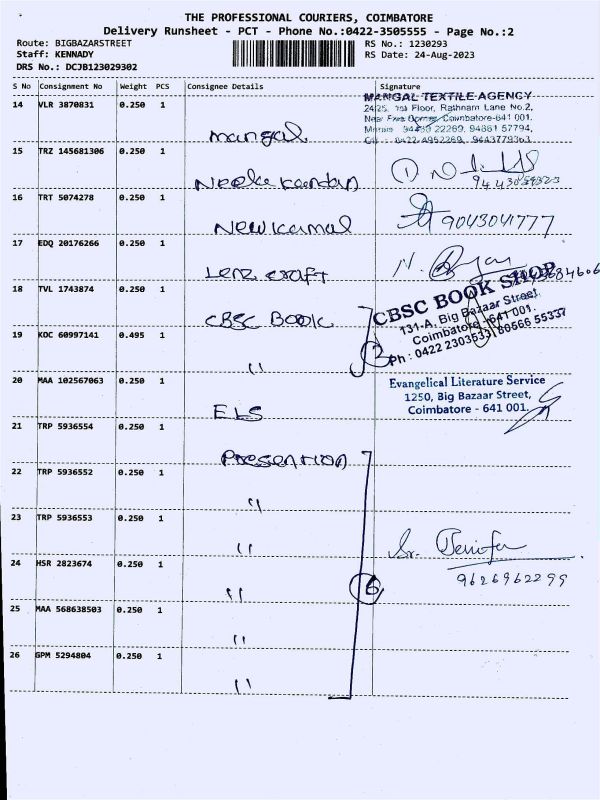 THE PROFESSIONAL COURIERS, COIMBATORE
Delivery Runsheet - PCT - Phone No.:0422-3505555 - Page No.:2
Route: BIGBAZARSTREET RS No.: 1230293
Staff: KENNADY RS Date: 24-Aug-2023
DRS No.: DCJB123029302
S No Consignment No Weight PCS Consignee Details Signature
14 VLR 3870831 0.250 1
Mangal
MANGAL TEXTILE AGENCY
24/25, 1st Floor, Rathnam Lane No.2,
Near Five Corner, Coimbatore-641 001.
94430 22269, 94861 57794,
0422-4952269, 9443779363
15 TRZ 145681306 0.250 1
Neela kandan
16 TRT 5074278 0.250 1
New kamal
9043041777
17 EDQ 20176266 0.250 1
Lenz craft
18 TVL 1743874 0.250 1
CBSC BOOK
CBSC BOOK SHOP
131-A, Big Bazaar Street,
Coimbatore - 641 001.
Ph : 0422 2303533, 80566 55337
19 KOC 60997141 0.495 1
"
20 MAA 102567063 0.250 1
ELS
Evangelical Literature Service
1250, Big Bazaar Street,
Coimbatore - 641 001.
21 TRP 5936554 0.250 1
Presention
22 TRP 5936552 0.250 1
"
23 TRP 5936553 0.250 1
"
Sr. Jenifer
24 HSR 2823674 0.250 1
"
6
9626962299
25 MAA 568638503 0.250 1
"
26 GPM 5294804 0.250 1
"